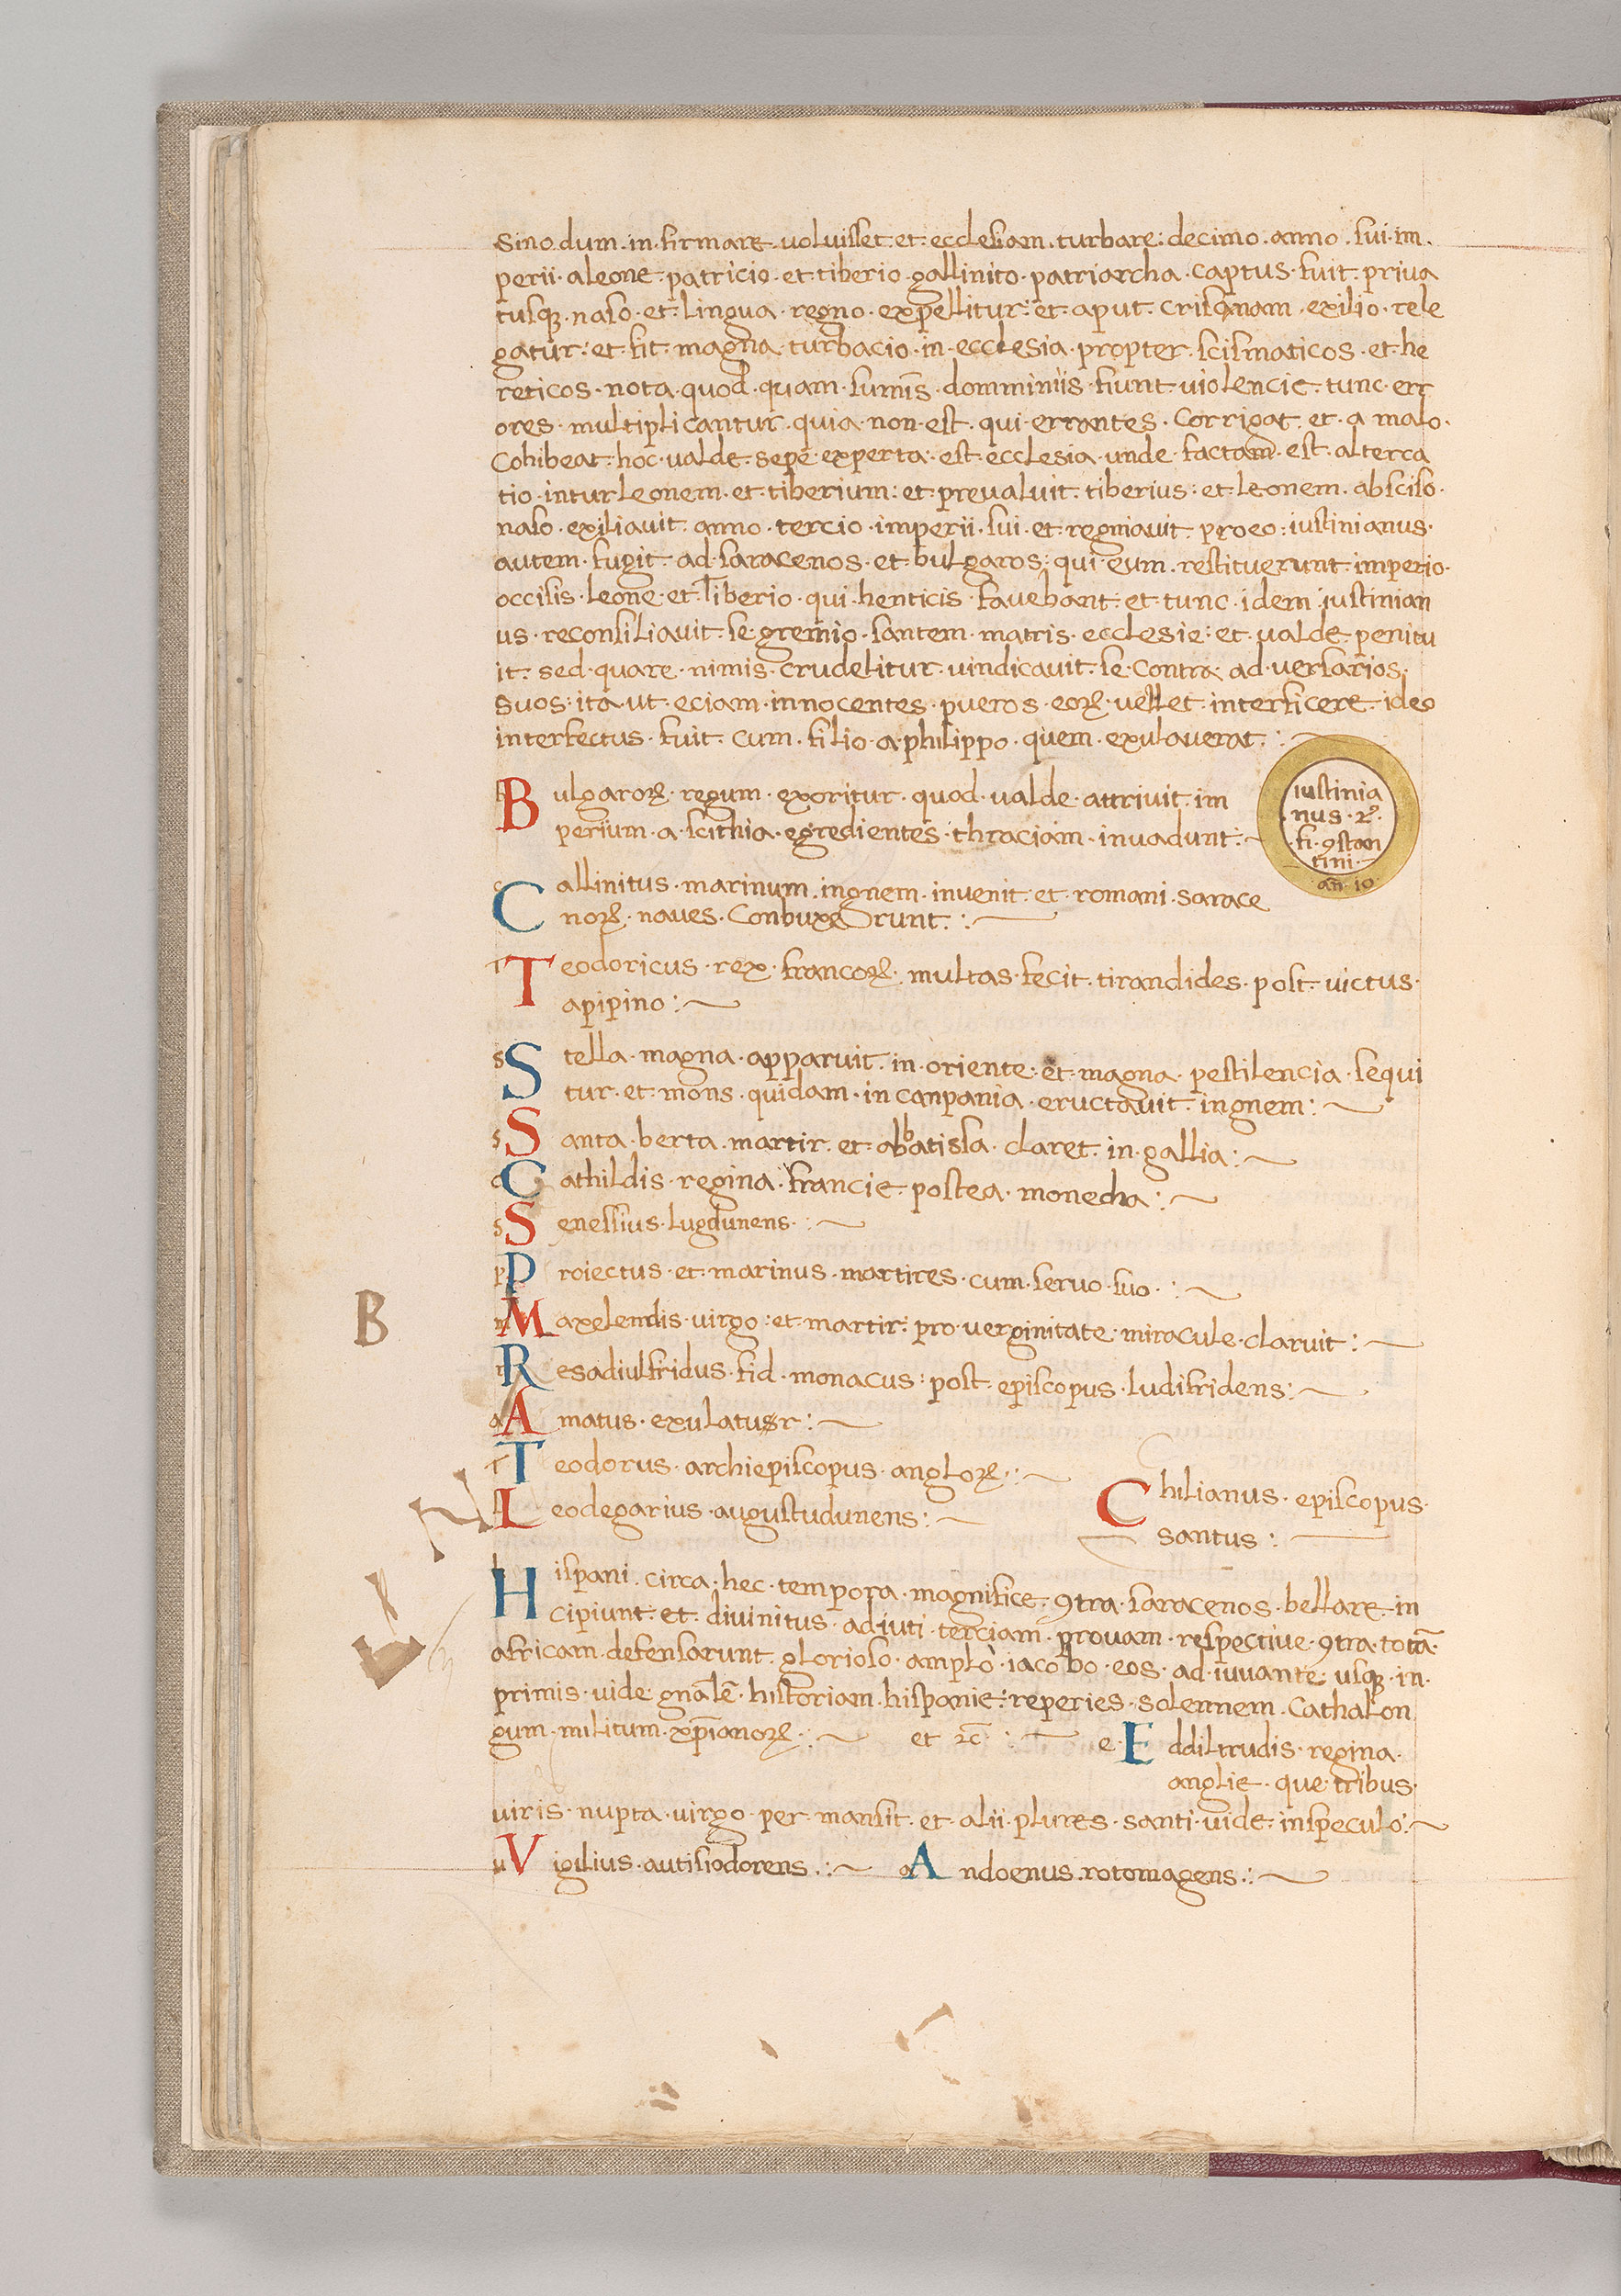 sino.dum.in.firmare.voluisset.et.ecclesiam.turbare:decimo.anno.sui.im.
perii.aleone.patricio.et.tiberio.gallinito.patriarcha.captus.fuit.priva
tusqꝫ.naso.et.lingua.regno.expellitur:et.aput.crisonam.exilio.rele
gatur:et.fit.magna.turbacio.in.ecclesia.propter.scismaticos.et.he
reticos.nota.quod.quam.sumis.domminiis.fiunt.violencie.tunc.err
ores.multiplicantur.quia.non.est.qui.errantes.corrigat.et.a malo.
cohibeat.hoc.valde.sepe.experta.est.ecclesia.unde.factam.est.alterca
tio.intur leonem.et.tiberium:et.prevaluit.tiberius:et.leonem.absciso.
naso.exiliavit.anno.tercio.imperii.sui.et.regniavit.proeo:iustinianus.
autem.fugit.ad.saracenos.et.bulgaros:qui.eum.restituerunt.imperio.
occisis.leone.et.Tiberio.qui.henticis.favebant.et.tunc.idem.iustinian
us.reconsiliavit.se.gremio.santem.matris.ecclesie:et.valde.penitu
it.sed.quare.nimis.crudelitur.vindicavit.se.contra.ad.versarios.
suos:ita.ut.eciam.innocentes.pueros.eoꝝ.vellet.interficere.ideo
interfectus.fuit.cum.filio.a.philippo.quem.exulaverat.:
Bulgaroꝝ.regum.exoritur.quod.valde.attrivit.im
perium.a.scithia.egredientes.thraciam.invadunt:
iustinia
nus.2º.
.fi.ꝯstan
tini.
.an̄.10.
Callinitus.marinum.ingnem.invenit.et.romani.sarace
noꝝ.naves.conbuxerunt.:
Teodoricus.rex.francoꝝ.multas.fecit.tirandides.post.victus.
apipino:
Stella.magna.apparuit.in.oriente.et.magna.pestilencia.sequi
tur.et.mons.quidam.in canpania.eructavit.ingnem:
Santa.berta.martir.et.abbatissa.claret.in.gallia:
Cathildis.regina.francie.postea.monecha:
Senessius.lugdunens.:
Proiectus.et.marinus.martires.cum.servo.suo.:
B
Maxelendis.virgo:et.martir:pro.verginitate.miracule.claruit:
Resadiulfridus.fid.monacus:post.episcopus.ludifridens:
Amatus.exulatusr:
Teodorus.archiepiscopus.angloꝝ.:
Leodegarius.augustudunens:
Chilianus.episcopus.
santus:
Hispani.circa.hec.tempora.magnifice.ꝯtra.saracenos.bellare.in
cipiunt.et.divinitus.adiuti.terciam.provam.respective.ꝯtra.totā.
africam.defensarunt.glorioso.amplo.iacobo.eos.ad.iuvante.usqꝫ.in.
primis.vide.gnalē.historiam.hispanie:reperies.solennem.cathalon
gum.militum.xp̄ianoꝝ.: et ꝛc̄.:
Eddiltrudis.regina.
anglie.que.tribus.
viris.nupta.virgo.per.mansit.et.alii.plures.santi.vide.inspeculo:
Vigilius.autisiodorens.: Andoenus.rotomagens.: